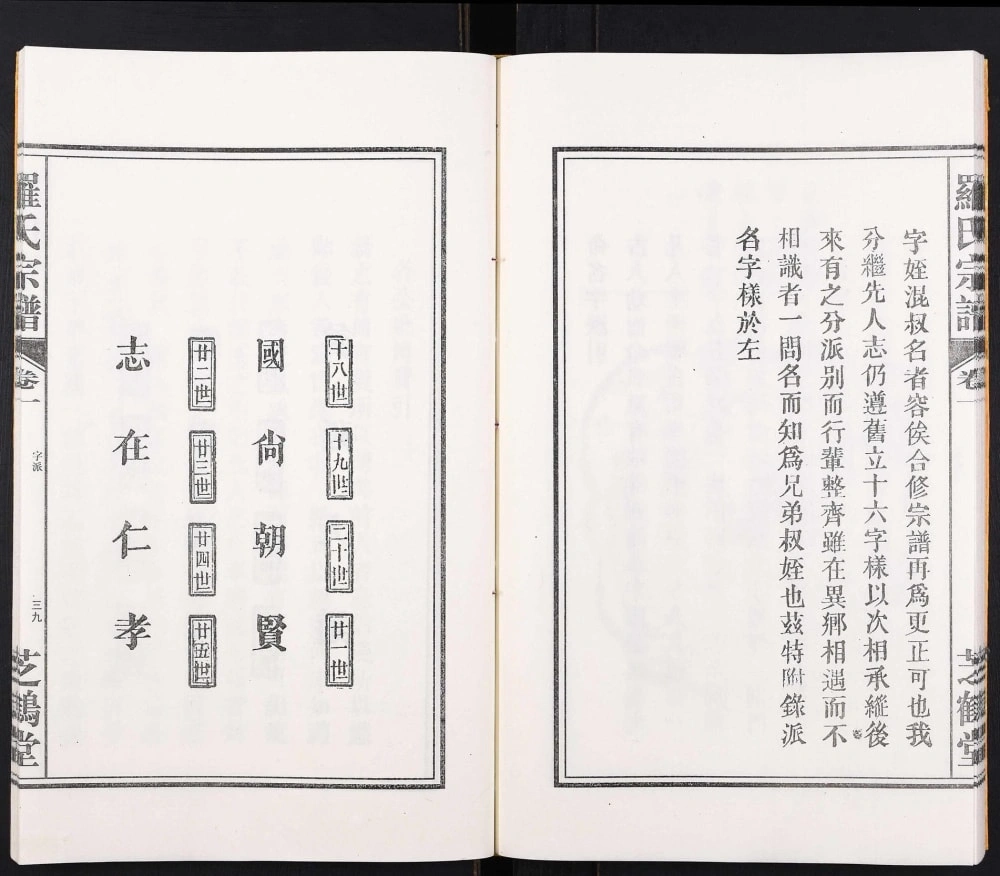 羅氏宗譜
卷一
芝鶴堂
字姪混叔名者容俟合修宗譜再爲更正可也我
分繼先人志仍遵舊立十六字樣以次相承縱後
來有之分派別而行輩整齊雖在異鄉相遇而不
相識者一問名而知爲兄弟叔姪也茲特附錄派
名字樣於左
十八世 十九世 二十世 廿一世
國尙朝賢
廿二世 廿三世 廿四世 廿五世
志在仁孝
羅氏宗譜
卷一
字派
三九
芝鶴堂